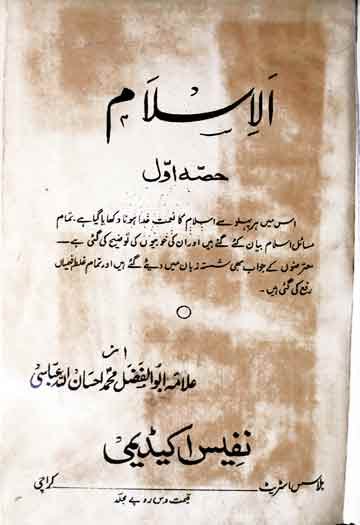 الاسلام
حصہ اوّل
اس میں ہر پہلو سے اسلام کا نعمت خدا ہونا دکھایا گیا ہے۔ تمام
مسائل اسلام بیان کئے گئے ہیں اور ان کی خوبیوں کی توضیح کی گئی ہے۔
معترضوں کے جواب بھی شستہ زبان میں دیئے گئے ہیں اور تمام غلط فہمیاں
رفع کی گئی ہیں۔
از
علامہ ابوالفضل محمد احسان اللہ عباسی
نفیس اکیڈیمی
بلاسس اسٹریٹ کراچی
قیمت دس روپے مجلد